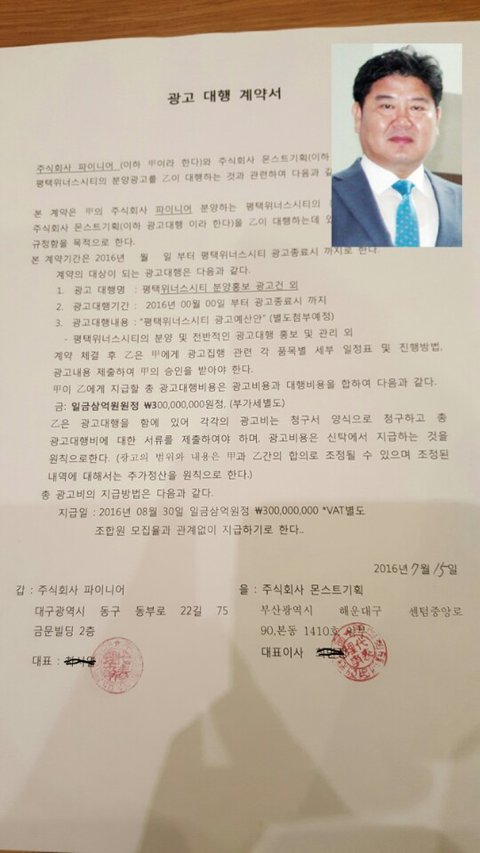 광고 대행 계약서
주식회사 파이니어 (이하 甲이라 한다)와 주식회사 몬스트기획(이하
평택위너스시티의 분양광고를 乙이 대행하는 것과 관련하여 다음과 같
본 계약은 甲의 주식회사 파이니어 분양하는 평택위너스시티의
주식회사 몬스트기획(이하 광고대행 이라 한다)을 乙이 대행하는데 있
규정함을 목적으로 한다.
본 계약기간은 2016년 월 일 부터 평택위너스시티 광고종료시 까지로 한다.
계약의 대상이 되는 광고대행은 다음과 같다.
1. 광고 대행명 : 평택위너스시티 분양홍보 광고건 외
2. 광고대행기간 : 2016년 00월 00일 부터 광고종료시 까지
3. 광고대행내용 : "평택위너스시티 광고예산안" (별도첨부예정)
- 평택위너스시티의 분양 및 전반적인 광고대행 홍보 및 관리 외
계약 체결 후 乙은 甲에게 광고집행 관련 각 품목별 세부 일정표 및 진행방법,
광고내용 제출하여 甲의 승인을 받아야 한다.
甲이 乙에게 지급할 총 광고대행비용은 광고비용과 대행비용을 합하여 다음과 같다.
금: 일금삼억원원정 ₩300,000,000원정, (부가세별도)
乙은 광고대행을 함에 있어 각각의 광고비는 청구서 양식으로 청구하고 총
광고대행비에 대한 서류를 제출하여야 하며, 광고비용은 신탁에서 지급하는 것을
원칙으로한다. (광고의 범위와 내용은 甲과 乙간의 합의로 조정될 수 있으며 조정된
내역에 대해서는 추가정산을 원칙으로 한다.)
총 광고비의 지급방법은 다음과 같다.
지급일 : 2016년 08월 30일 일금삼억원정 ₩300,000,000 *VAT별도
조합원 모집율과 관계없이 지급하기로 한다..
2016년 7월 15일
갑 : 주식회사 파이니어
대구광역시 동구 동부로 22길 75
금문빌딩 2층
대표 :
을 : 주식회사 몬스트기획
부산광역시 해운대구 센텀중앙로
90,본동 1410호
대표이사